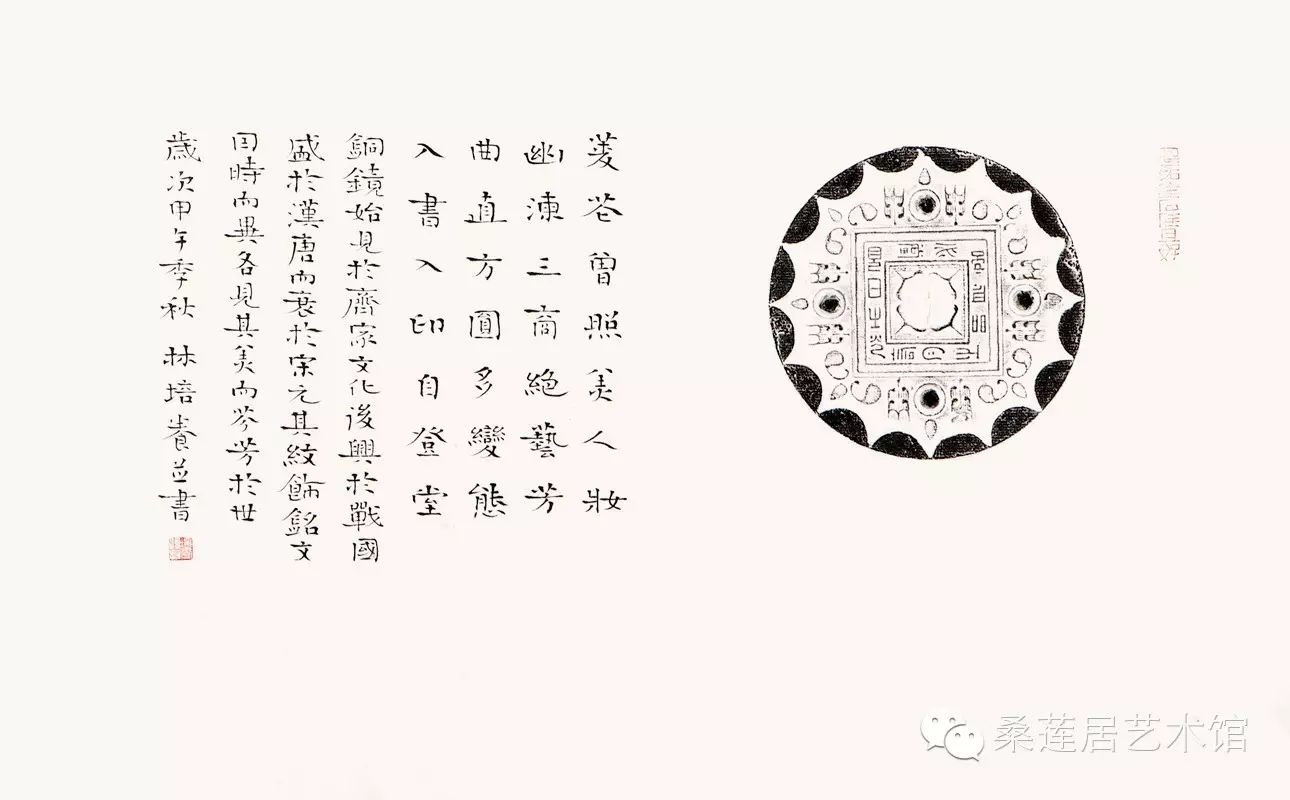 菱花曾照美人妝
幽湅三商絕藝芳
曲直方圓多變態
入書入印自登堂
銅鏡始見於齊家文化後興於戰國
盛於漢唐而衰於宋元其紋飾銘文
因時而異各見其美而芬芳於世
歲次甲午季秋 林培養並書
桑莲居艺术馆